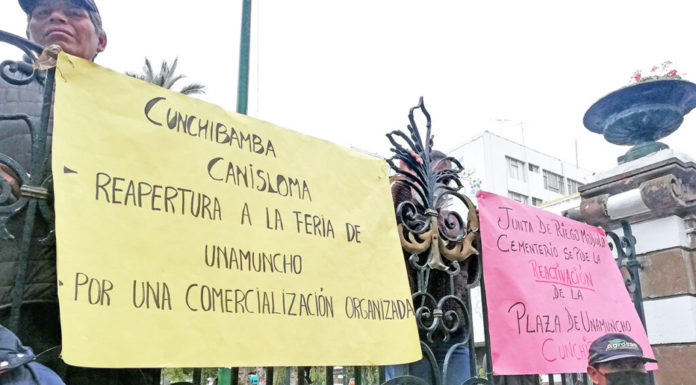 CUNCHIBAMBA
CANISLOMA
- REAPERTURA A LA FERIA DE
UNAMUNCHO
- POR UNA COMERCIALIZACIÓN ORGANIZADA
JUNTA DE RIEGO
CEMENTERIO SE PIDE LA
REACTIVACIÓN
DE LA
PLAZA DE UNAMUNCHO